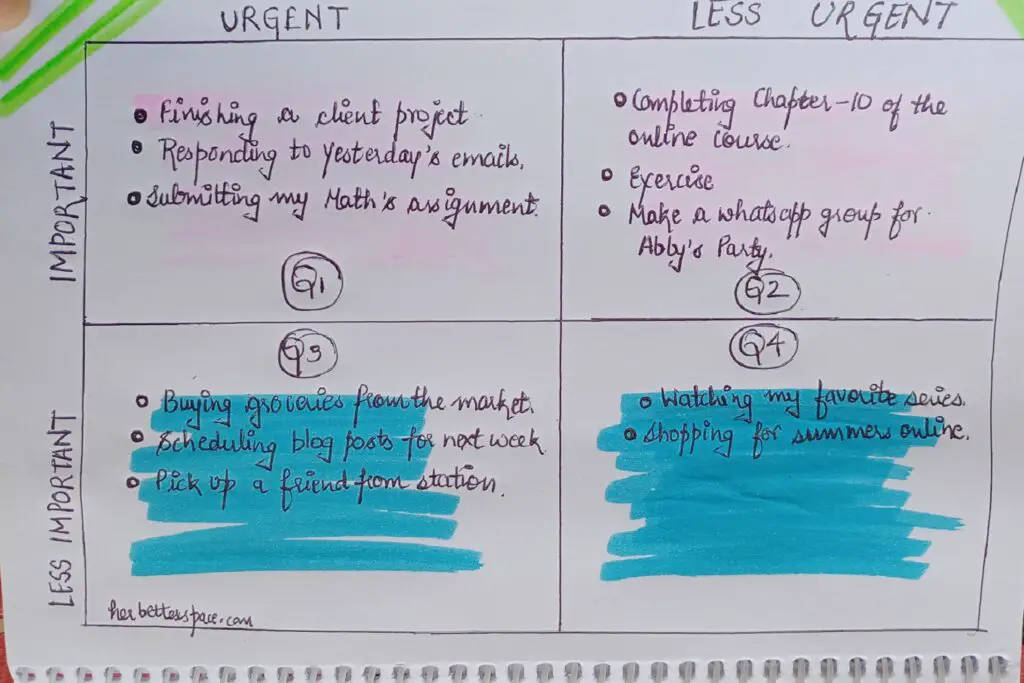 URGENT
LESS URGENT
IMPORTANT
Finishing a client project
Responding to yesterday's emails.
Submitting my Math's assignment.
Q1
Completing Chapter-10 of the
online course.
Exercise
Make a whatsapp group for
Abby's Party.
Q2
LESS IMPORTANT
Q3
Buying groceries from the market.
Scheduling blog posts for next week
Pick up a friend from station.
Q4
Watching my favorite series.
Shopping for summers online.
herbetterspace.com